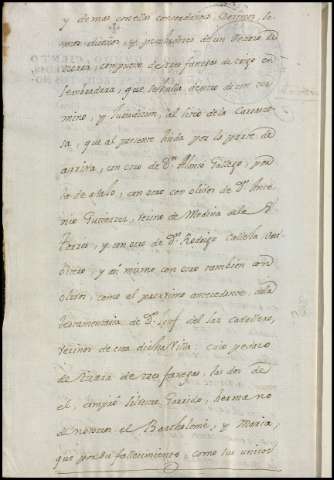 y demas con ellos convendrá, Señores, le-
mos dueños, y posehedores de un Pedazo de
tierra, compuesto de tres fanegas de trigo en
sembradura, que se halla dentro de este ter-
mino, y Jurisdicion, al sitio de la
que al presente linda por la parte de
arriva, con otro de Dn Alonso Gallego, y por
la de abajo, con otro con olibos de Dn Anto-
nio Gutierrez, vecino de Medina de las
Torres, y con otro de Dn Rodrigo
y asi mismo con otro tambien con
olibos, como el proximo antecedente de la
testamentaria de Dn Josef del Laz Cavallero,
vecinos de esta dicha Villa cuio pedazo
de tierra de tres fanegas, las dos de
el, compró Silvestre Garrido, herma no
de nosotros el Bartholomé, y Maria,
que por su fallecimiento, como sus unicos